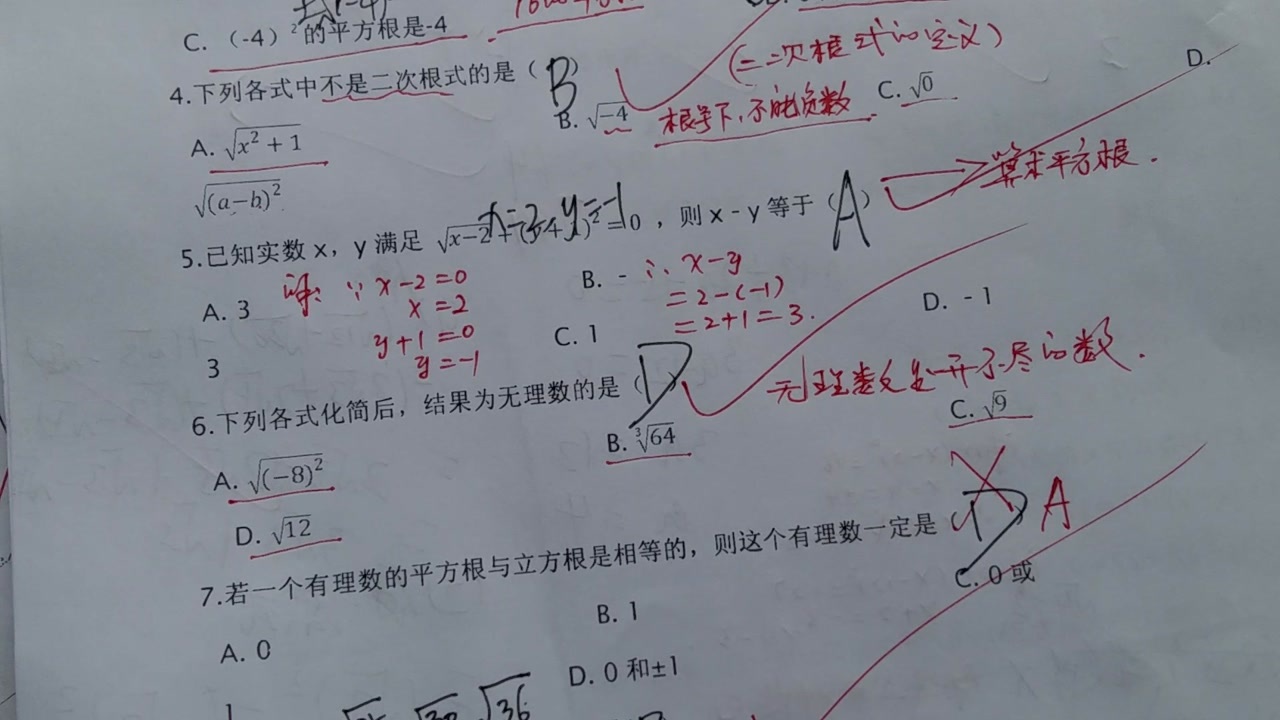 C. （-4）²的平方根是-4
（二次根式的定义）
4.下列各式中不是二次根式的是（B）
A. √(x²+1)
B. √-4
根号下，不能负数
C. √0
D.
√(a-b)²
算术平方根.
5.已知实数 x，y 满足 √x-2+(y+1)²=0，则 x - y 等于（A）
x=2 y=-1
A. 3
解：∵ x-2=0
x=2
y+1=0
y=-1
B. -
3
∴ x-y
=2-(-1)
=2+1=3.
C. 1
D. - 1
6.下列各式化简后，结果为无理数的是（D）
无理数是开不尽的数.
A. √(-8)²
B. ³√64
C. √9
D. √12
7.若一个有理数的平方根与立方根是相等的，则这个有理数一定是（D A
A. 0
B. 1
C. 0 或
1
D. 0 和±1
√36